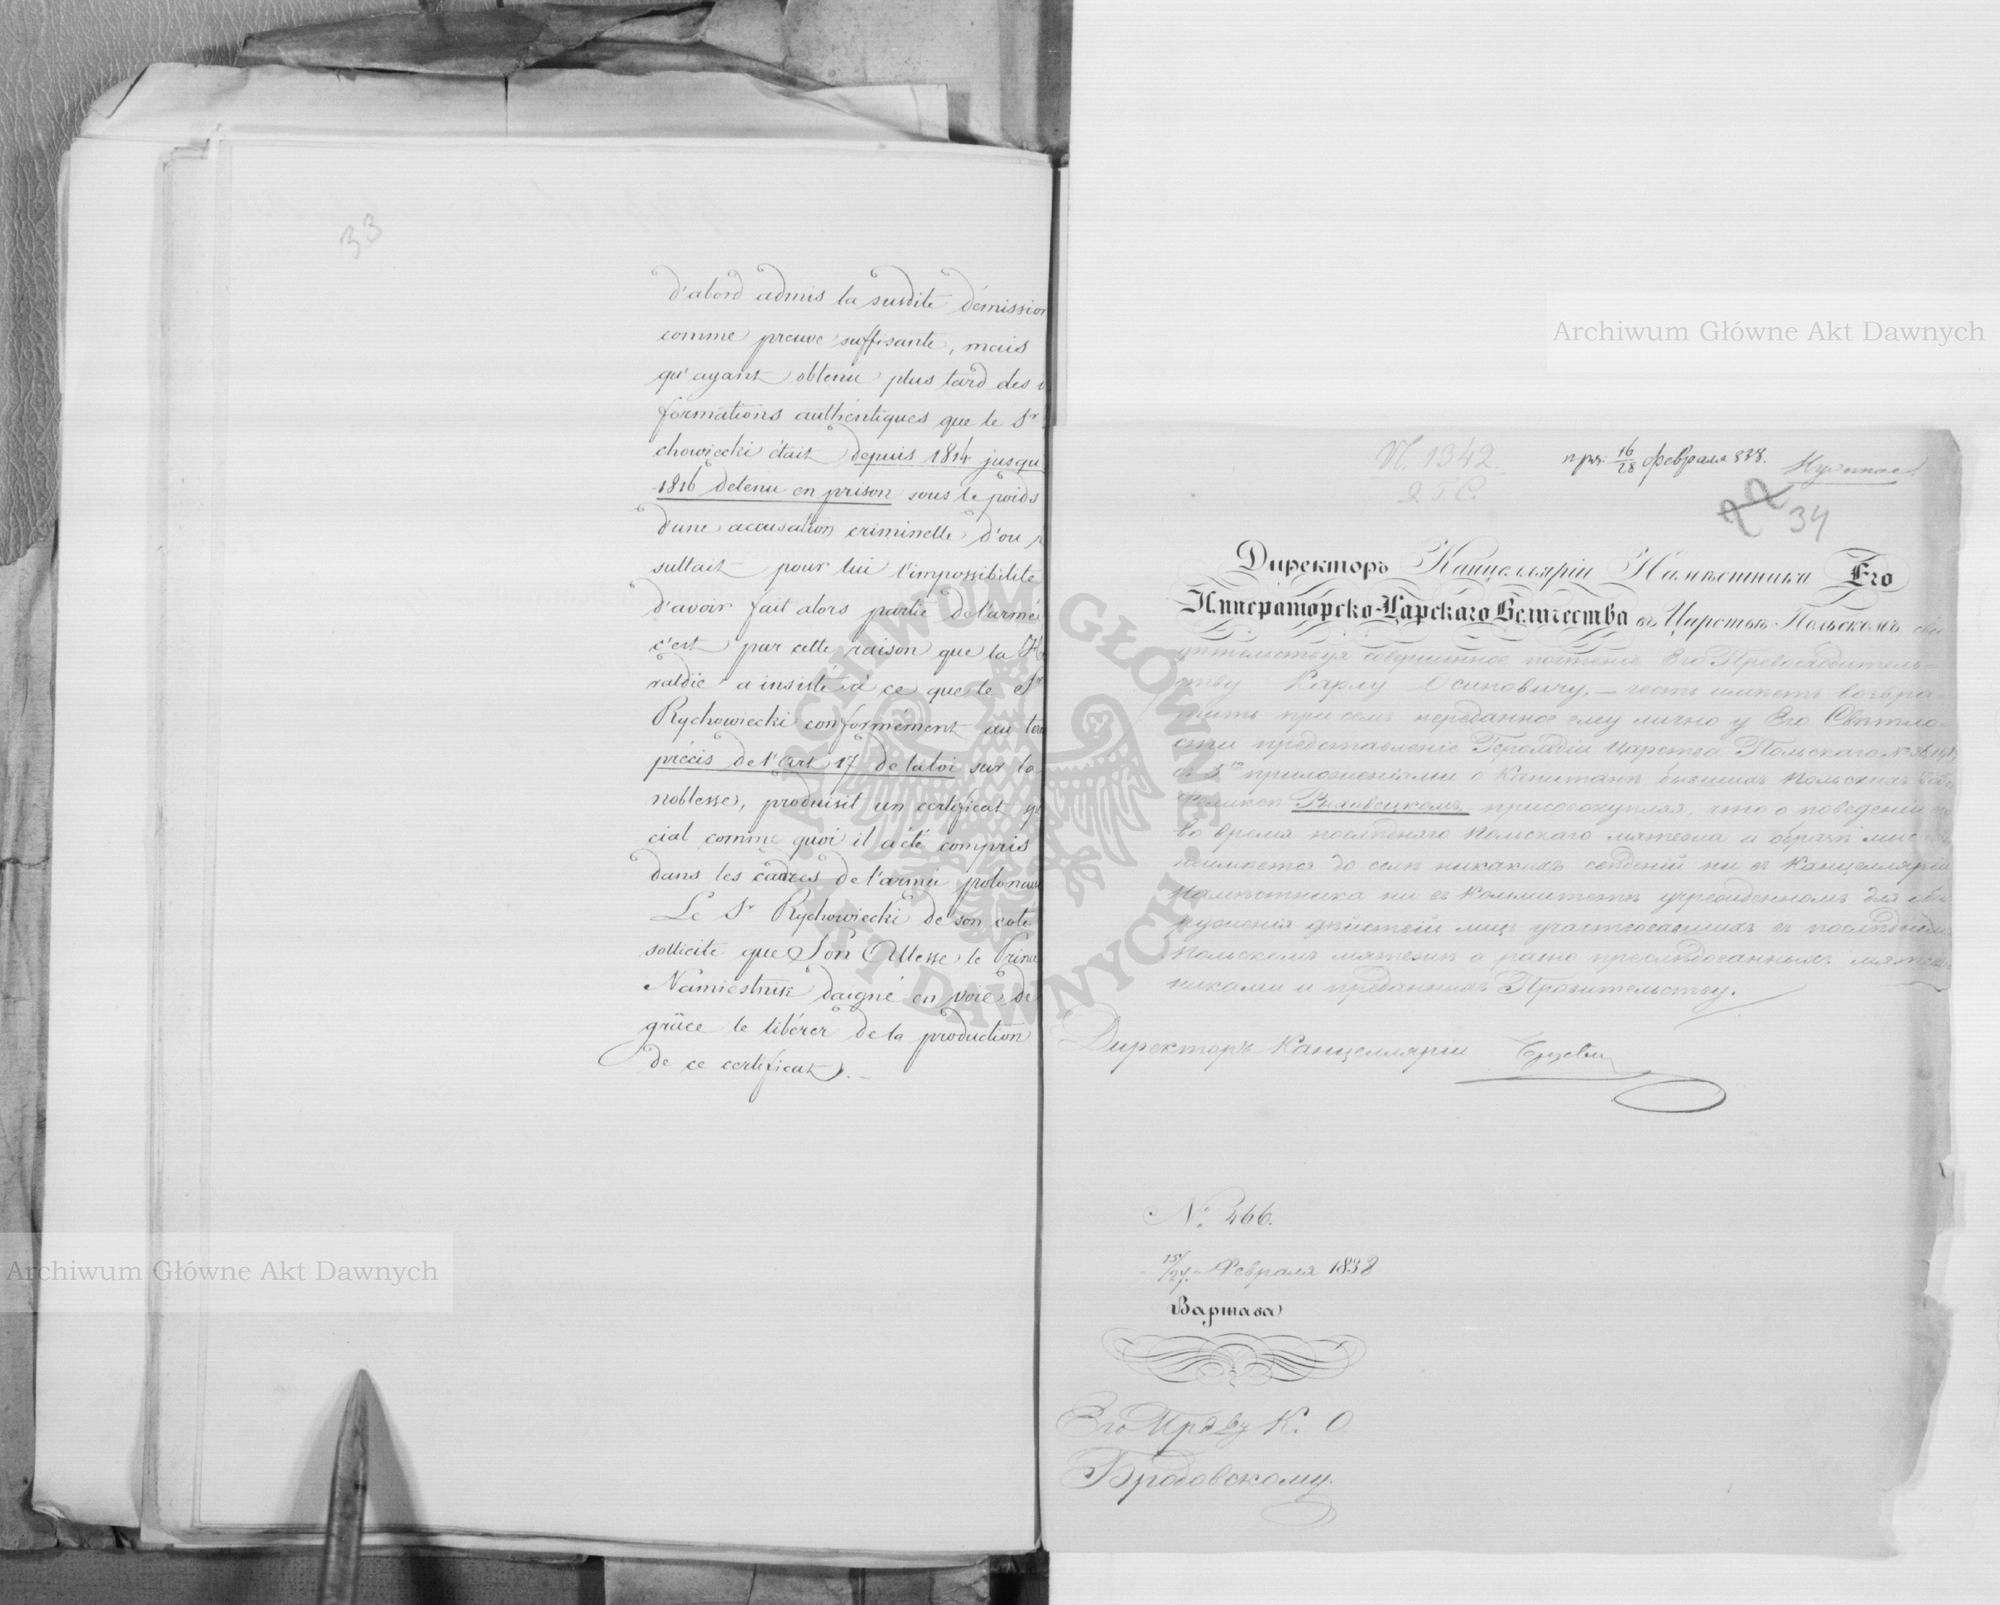 33
d'abord admis la susdite démission
comme preuve suffisante, mais
qu'ayant obtenu plus tard des
formations authentiques que le Sr
chowiecki était depuis 1814 jusqu
1816 detenu en prison sous le poids
d'une accusation criminelle d'ou
sultait pour lui l'impossibilité
d'avoir fait alors partie de l'armé
c'est par cette raison que la
raldie a insisté à ce que le Sr
Rychowiecki conformement au
précis de l'art 17 de la loi sur la
noblesse, produisit un certificat
cial comme quoi il a été compris
dans les cadres de l'armée polonaise
Le Sr Rychowiecki de son coté
sollicite que Son Altesse le Prince
Namiestnik daigne en voie de
grâce le libérer de la production
de ce certificat. —
N. 1342.
прч. 16/28 февраля 838.
34
Директоръ Канцелляріи Намѣстника Его
Императорско-Царскаго Величества въ Царствѣ Польскомъ сви
дѣтельствуя совершенное почтеніе Его Превосходитель-
ству Карлу Осиповичу, — честь имѣетъ возвра-
тить при семъ переданное ему лично у Его Свѣтло-
сти представленіе Герольдіи Царства Польскаго №
съ 3мя приложеніями о Капитанѣ бывшихъ Польскихъ
Рыховецкомъ, присовокупляя, что о поведеніи
во время послѣдняго Польскаго мятежа и образѣ мыс
имѣется до селѣ никакихъ свѣденій ни въ Канцелляріи
Намѣстника ни въ Коммитетѣ учрежденномъ для обна
руженія дѣйствій лицъ участвовавшихъ въ послѣднемъ
Польскомъ мятежѣ а равно преслѣдованныхъ мятеж
никами и преданныхъ Правительству.
Директоръ Канцелляріи
№ 466.
15/27 Февраля 1838
Варшава
Его Прев ву К. О.
Бродовскому.
Archiwum Główne Akt Dawnych
Archiwum Główne Akt Dawnych
ARCHIWUM GŁÓWNE AKT DAWNYCH